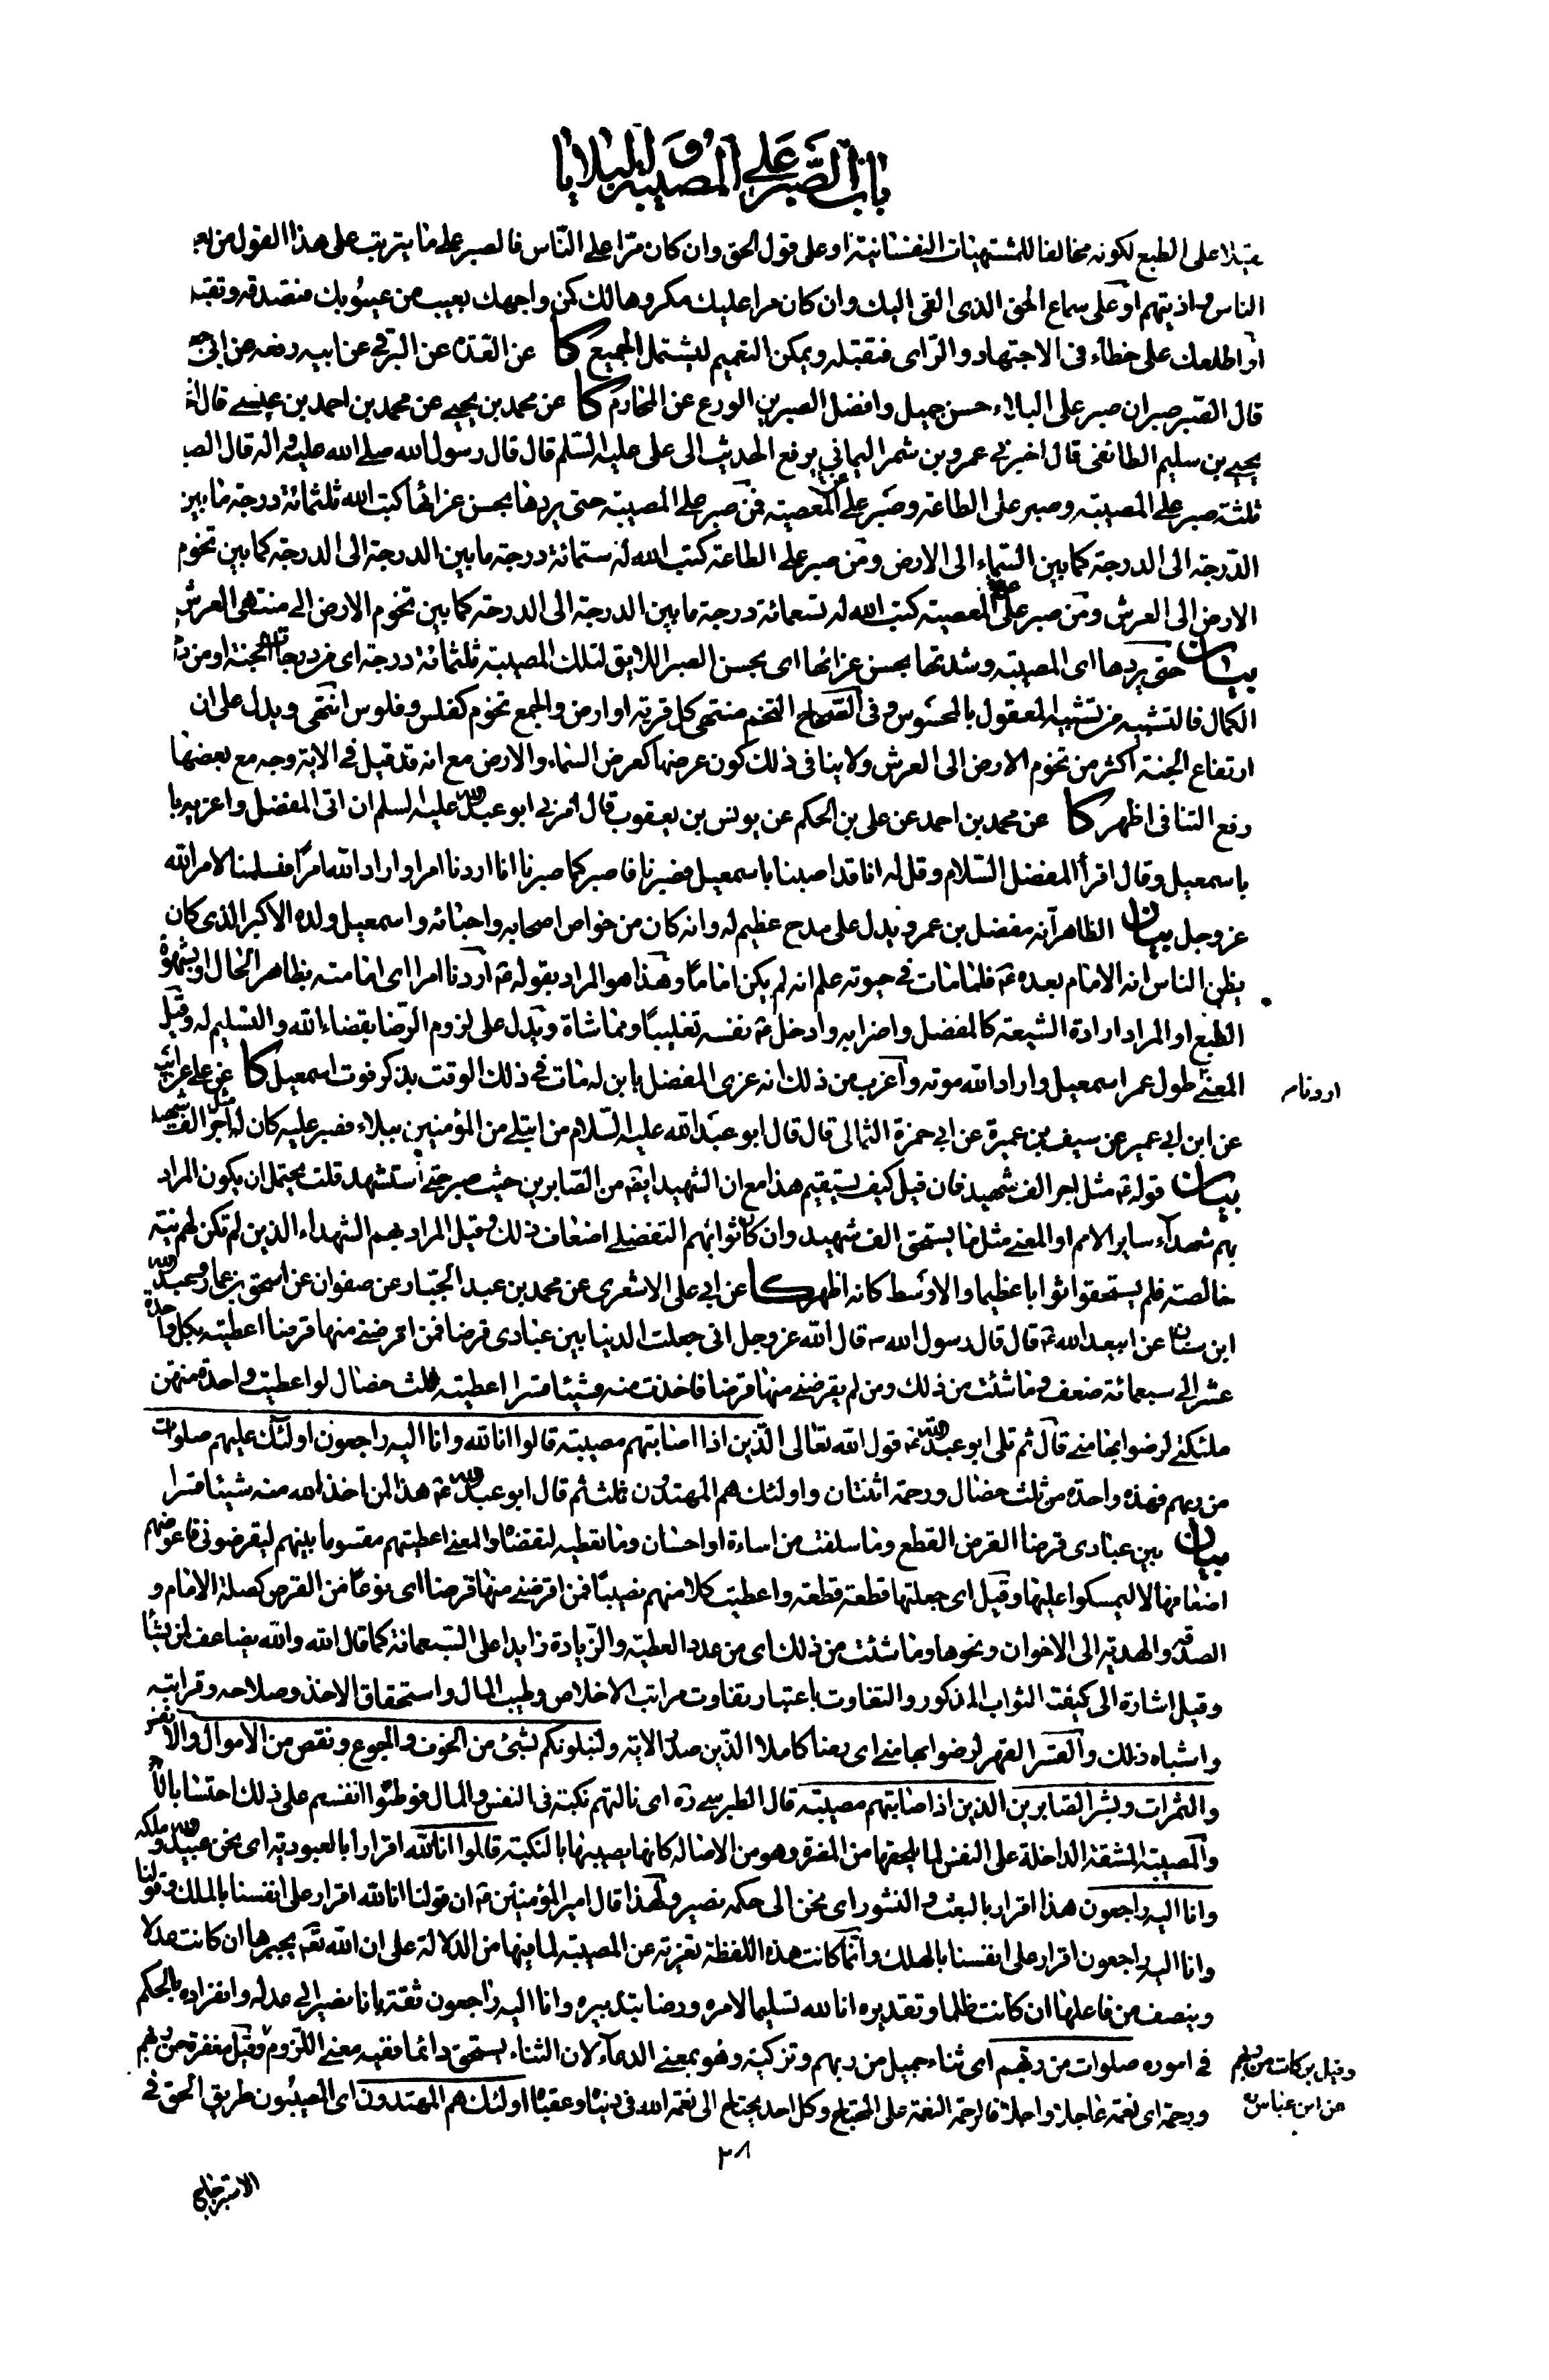 باب الصبر على المصيبة والبلايا
ثقيلا على الطبع لكونه مخالفا للمشتهيات النفسانية او على قول الحق وان كان مرّا على النّاس فالصبر على ما يترتب على هذا القول من بعـ
الناس واذيتهم او على سماع الحق الذى القى اليك وان كان مرا عليك مكروها لك كمن واجهك بعيب من عيوبك فتصدقه وتقبله
او اطلعك على خطاء فى الاجتهاد والرّاى فتقبله ويمكن التعميم ليشتمل الجميع كا عن العدّة عن البرقي عن ابيه رفعه عن ابى
قال الصّبر صبران صبر على البلاء حسن جميل وافضل الصبرين الورع عن المحارم كا عن محمد بن يحيى عن محمد بن احمد بن عيسى قال اخـ
يحيى بن سليم الطائفى قال اخبرني عمرو بن شمر اليماني يرفع الحديث الى على عليه السّلم قال قال رسول الله صلى الله عليه واله قال الصبـ
ثلثة صبر على المصيبة وصبر على الطاعة وصبر على المعصية فمن صبر على المصيبة حتى يردها بحسن عزائها كتب الله ثلثمائة درجة ما بين
الدّرجة الى الدرجة كما بين السّماء الى الارض ومن صبر على الطاعة كتب الله له ستمائة درجة ما بين الدرجة الى الدرجة كما بين تخوم
الارض الى العرش ومن صبر على المعصية كتب الله له تسعمائة درجة ما بين الدرجة الى الدرجة كما بين تخوم الارض الى منتهى العرش
بيان حتى يردها اى المصيبة وشدتها بحسن عزائها اى بحسن الصبر اللايق لتلك المصيبة ثلثمائة درجة اى من درجات الجنة او من د
الكمال فالتشبيه من تشبيه المعقول بالمحسوس وفى الصّحاح التخم منتهى كل قرية او ارض والجمع تخوم كفلس وفلوس انتهى ويدل على ان
ارتفاع الجنة اكثر من تخوم الارض الى العرش ولا ينافى ذلك كون عرضها كعرض السّماء والارض مع انه قد قيل في الاية وجه مع بعضها
رفع التنافى اظهر كا عن محمد بن احمد عن على بن الحكم عن يونس بن يعقوب قال امرني ابو عبد الله عليه السلم ان اتى المفضل واعزيه با
باسمعيل وقال اقرأ المفضل السّلام وقل له انا قد اصبنا باسمعيل فصبرنا فاصبر كما صبرنا انا اردنا امرا واراد الله امرًا فسلمنا لامر الله
عز وجل بيان الظاهر انّه مفضل بن عمر ويدل على مدح عظيم له وانه كان من خواص اصحابه واحبائه واسمعيل ولده الاكبر الذى كان
يظن الناس انه الامام بعده ع فلما مات في حيوته علم انه لم يكن اماما وهذا هو المراد بقوله ع اردنا امرا اى امامته بظاهر الحال او بشهوة
الطبع او المراد ارادة الشيعة كالمفضل واضرابه وادخل ع نفسه تغليبًا ومماشاة ويدل على لزوم الرّضا بقضاء الله والتسليم له وقيل
المعنى طول عمر اسمعيل واراد الله موته واغرب من ذلك انه عزى المفضل بابن له مات في ذلك الوقت بذكر فوت اسمعيل كا عن على عن ابيه
اردنا
عن ابن ابي عمير عن سيف بن عميرة عن ابي حمزة الثمالى قال قال ابو عبد الله عليه السّلام من ابتلى من المؤمنين ببلاء فصبر عليه كان له مثل اجر الف شهيد
بيان قوله ع مثل اجر الف شهيد فان قيل كيف يستقيم هذا مع ان الشهيد ايضا من الصّابرين حيث صبر حتى استشهد قلت يحتمل ان يكون المراد
بهم شهداء ساير الامم او المعنى مثل ما يستحق الف شهيد وان كان ثوابهم التفضلى اضعاف ذلك وقيل المراد بهم الشهداء الذين لم تكن لهم نية
خالصة فلم يستحقوا ثوابا عظيما والاوسط كانه اظهر كا عن ابي على الاشعرى عن محمد بن عبد الجبّار عن صفوان عن اسحق بن عمار وعبد الله
ابن سنان عن ابيعبد الله ع قال قال رسول الله ص قال الله عز وجل انى جعلت الدنيا بين عبادى قرضا فمن اقرضنى منها قرضا اعطيته بكل واحدة
عشرا الى سبعمائة ضعف وما شئت من ذلك ومن لم يقرضنى منها قرضا فاخذت منه شيئا قسرا اعطيته ثلث خصال لو اعطيت واحدة منهن
ملئكتى لرضوا بها منى قال ثم تلى ابو عبد الله ع قول الله تعالى الّذين اذا اصابتهم مصيبة قالوا انا لله وانا اليه راجعون اولئك عليهم صلوات
من ربهم فهذه واحدة من ثلث خصال ورحمة اثنتان واولئك هم المهتدون ثلث ثم قال ابو عبد الله ع هذا لمن اخذ الله منه شيئا قسرا
بيان بين عبادى قرضا القرض القطع وما سلفت من اساءة او احسان وما تعطيه لتقضاه والمعنى اعطيتهم مقسوما بينهم ليقرضونى فاعوضهم
اضعافها لا ليمسكوا عليها وقيل اى جعلتها قطعة قطعة واعطيت كلا منهم نصيبًا فمن اقرضنى منها قرضا اى نوعًا من القرض كصلة الامام و
الصدقة والهدية الى الاخوان ونحوها وما شئت من ذلك اى من عدد العطية والزيادة زايدا على السّبعمائة كما قال الله والله يضاعف لمن يشآء
وقيل اشارة الى كيفية الثواب المذكور والتفاوت باعتبار تفاوت مراتب الاخلاص وطيب المال واستحقاق الاخذ وصلاحه وقرابته
واشباه ذلك والقسر القهر لرضوا بها منى اى رضا كاملا الّذين صدر الاية ولنبلونكم بشئ من الخوف والجوع ونقص من الاموال والانفس
والثمرات وبشر الصّابرين الذين اذا اصابتهم مصيبة قال الطبرسى ره اى نالتهم نكبة فى النفس والمال فوطنّوا انفسهم على ذلك احتسابا للاجر
والمصيبة المشقة الداخلة على النفس لما يلحقها من المضرة وهو من الاصابة كانها يصيبها بالنكبة قالوا انا لله اقرارا بالعبودية اى نحن عبيد الله وملكه
وانا اليه راجعون هذا اقرار بالبعث والنشور اى نحن الى حكمه نصير ولهذا قال امير المؤمنين ع ان قولنا انا لله اقرار على انفسنا بالملك وقولنا
وانا اليه راجعون اقرار على انفسنا بالهلك وانّما كانت هذه اللفظة تعزية عن المصيبة لما فيها من الدلالة على ان الله تعالى يجبرها ان كانت عدلا
وينصف من فاعلها ان كانت ظلما وتقديره انا لله تسليما لامره ورضا بتدبيره وانا اليه راجعون ثقة بانا نصير الى عدله وانفراده بالحكم
في اموره صلوات من ربّهم اى ثناء جميل من ربهم وتزكية وهو بمعنى الدعآء لان الثناء يستحق دائما ففيه معنى اللّزوم وقيل مغفرة من ربهم
وقيل بركات من ربهم
عن ابن عباس
ورحمة اى نعمة عاجلا واجلا فالرحمة النعمة على المحتاج وكل احد يحتاج الى نعمة الله فى دنياه وعقباه اولئك هم المهتدون اى المصيبون طريق الحق في
٢٨
الاسترجاع